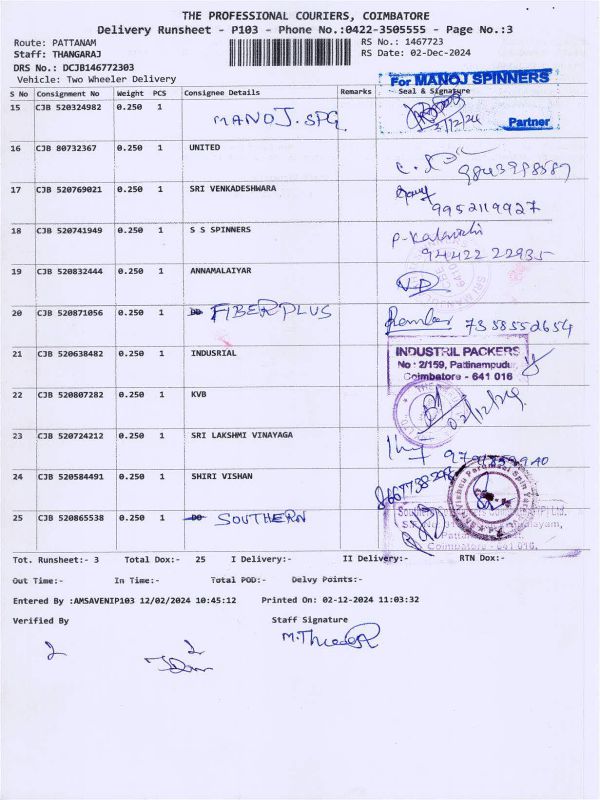 THE PROFESSIONAL COURIERS, COIMBATORE
Delivery Runsheet - P103 - Phone No.:0422-3505555 - Page No.:3
Route: PATTANAM RS No.: 1467723
Staff: THANGARAJ RS Date: 02-Dec-2024
DRS No.: DCJB146772303
Vehicle: Two Wheeler Delivery
For MANOJ SPINNERS
S No Consignment No Weight PCS Consignee Details Remarks Seal & Signature
15 CJB 520324982 0.250 1 MANOJ. SPG
Partner
16 CJB 80732367 0.250 1 UNITED
17 CJB 520769021 0.250 1 SRI VENKADESHWARA
9952119927
18 CJB 520741949 0.250 1 S S SPINNERS
94422 22935
19 CJB 520832444 0.250 1 ANNAMALAIYAR
20 CJB 520871056 0.250 1 FIBERPLUS 7358552654
21 CJB 520638482 0.250 1 INDUSRIAL INDUSTRIL PACKERS
No : 2/159, Pattinampudur,
Coimbatore - 641 016
22 CJB 520807282 0.250 1 KVB 02/12/24
23 CJB 520724212 0.250 1 SRI LAKSHMI VINAYAGA
24 CJB 520584491 0.250 1 SHIRI VISHAN
25 CJB 520865538 0.250 1 SOUTHERN
Coimbatore - 641 016.
Tot. Runsheet:- 3 Total Dox:- 25 I Delivery:- II Delivery:- RTN Dox:-
Out Time:- In Time:- Total POD:- Delvy Points:-
Entered By :AMSAVENIP103 12/02/2024 10:45:12 Printed On: 02-12-2024 11:03:32
Verified By Staff Signature